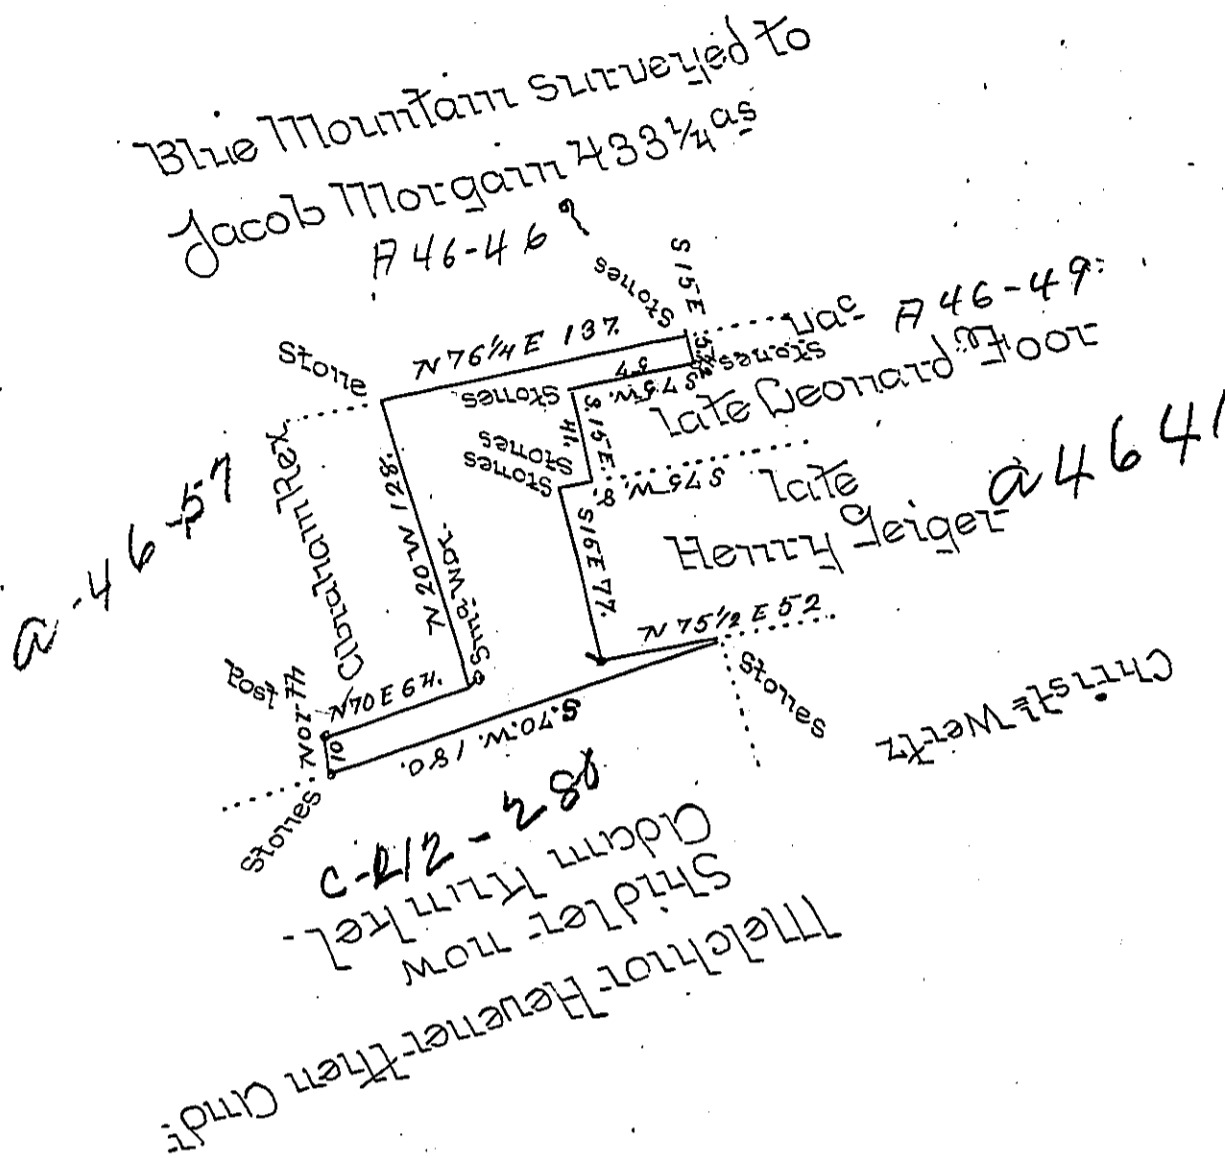 Blue Mountain Surveyed to
Jacob Morgain 433 1/4 as
A 46-46
Stones
S 15 E
Stone
N 76 1/4 E 137.
vac A 46-49
Stones
57
S 75 W.
Stones
Late Leonard Floor
S. 15 E.
41.
Stones
Stones
S 75 W. 8.
Late
Henry Geiger a 46 41
a-46-57
Abraham Rex
N 20 W 128.
S 16 E 77.
N 75 1/2 E 52
Stones
Post
N 70 E 64.
10
S. 70. W. 180.
Stones
Christn Wertz
C-212-286
Melchior Hevener then Andr
Shidler now
Adam Kunkel.